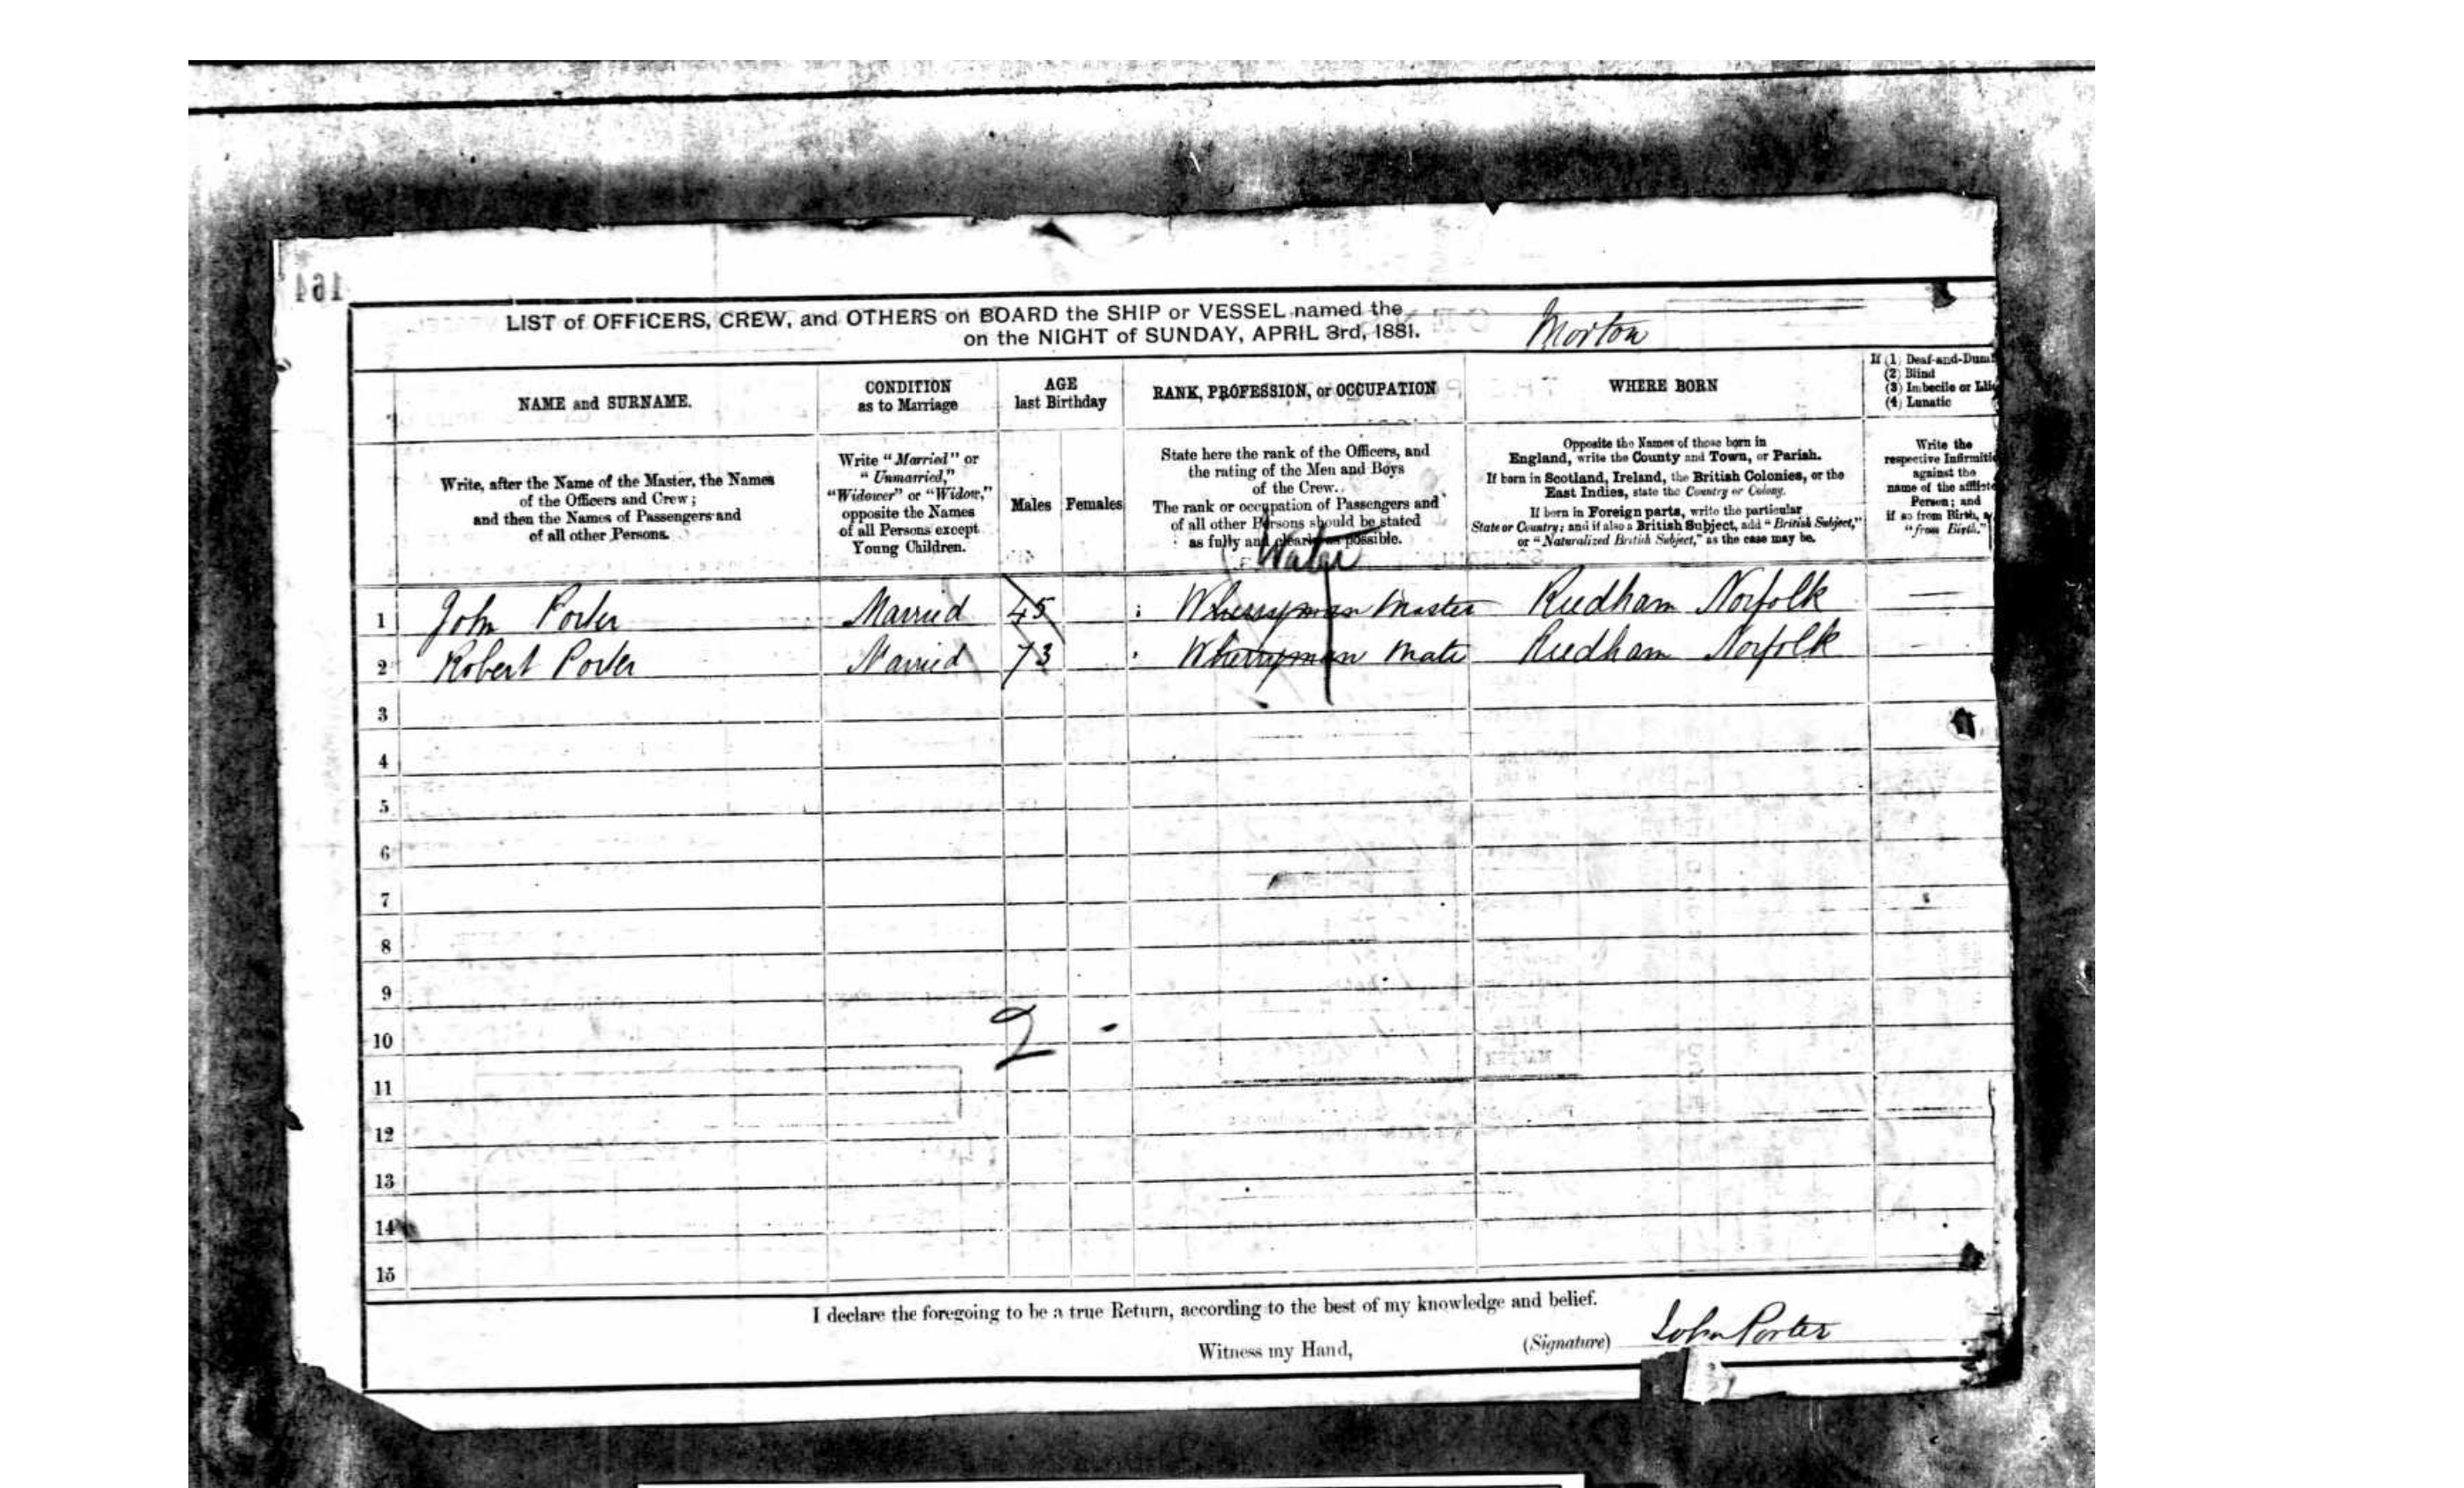 164
LIST of OFFICERS, CREW, and OTHERS on BOARD the SHIP or VESSEL named the Morton
on the NIGHT of SUNDAY, APRIL 3rd, 1881.
NAME and SURNAME.
CONDITION
as to Marriage
AGE
last Birthday
RANK, PROFESSION, or OCCUPATION
WHERE BORN
If (1) Deaf-and-Dum
(2) Blind
(3) Imbecile or
(4) Lunatic
Write, after the Name of the Master, the Names
of the Officers and Crew;
and then the Names of Passengers and
of all other Persons.
Write "Married" or
"Unmarried,"
"Widower" or "Widow,"
opposite the Names
of all Persons except
Young Children.
Males
Females
State here the rank of the Officers, and
the rating of the Men and Boys
of the Crew.
The rank or occupation of Passengers and
of all other Persons should be stated
as fully and clearly as possible.
Opposite the Names of those born in
England, write the County and Town, or Parish.
If born in Scotland, Ireland, the British Colonies, or the
East Indies, state the Country or Colony.
If born in Foreign parts, write the particular
State or Country; and if also a British Subject, add "British Subject,"
or "Naturalized British Subject," as the case may be.
Write the
respective Infirmitie
against the
name of the afflicte
Person; and
if so from Birth, a
"from Birth."
Water
1 John Porter Married 45 Wherryman Master Reedham Norfolk —
2 Robert Porter Married 73 Wherryman Mate Reedham Norfolk -
3
4
5
6
7
8
9
10
2 -
11
12
13
14
15
I declare the foregoing to be a true Return, according to the best of my knowledge and belief.
Witness my Hand, (Signature) John Porter